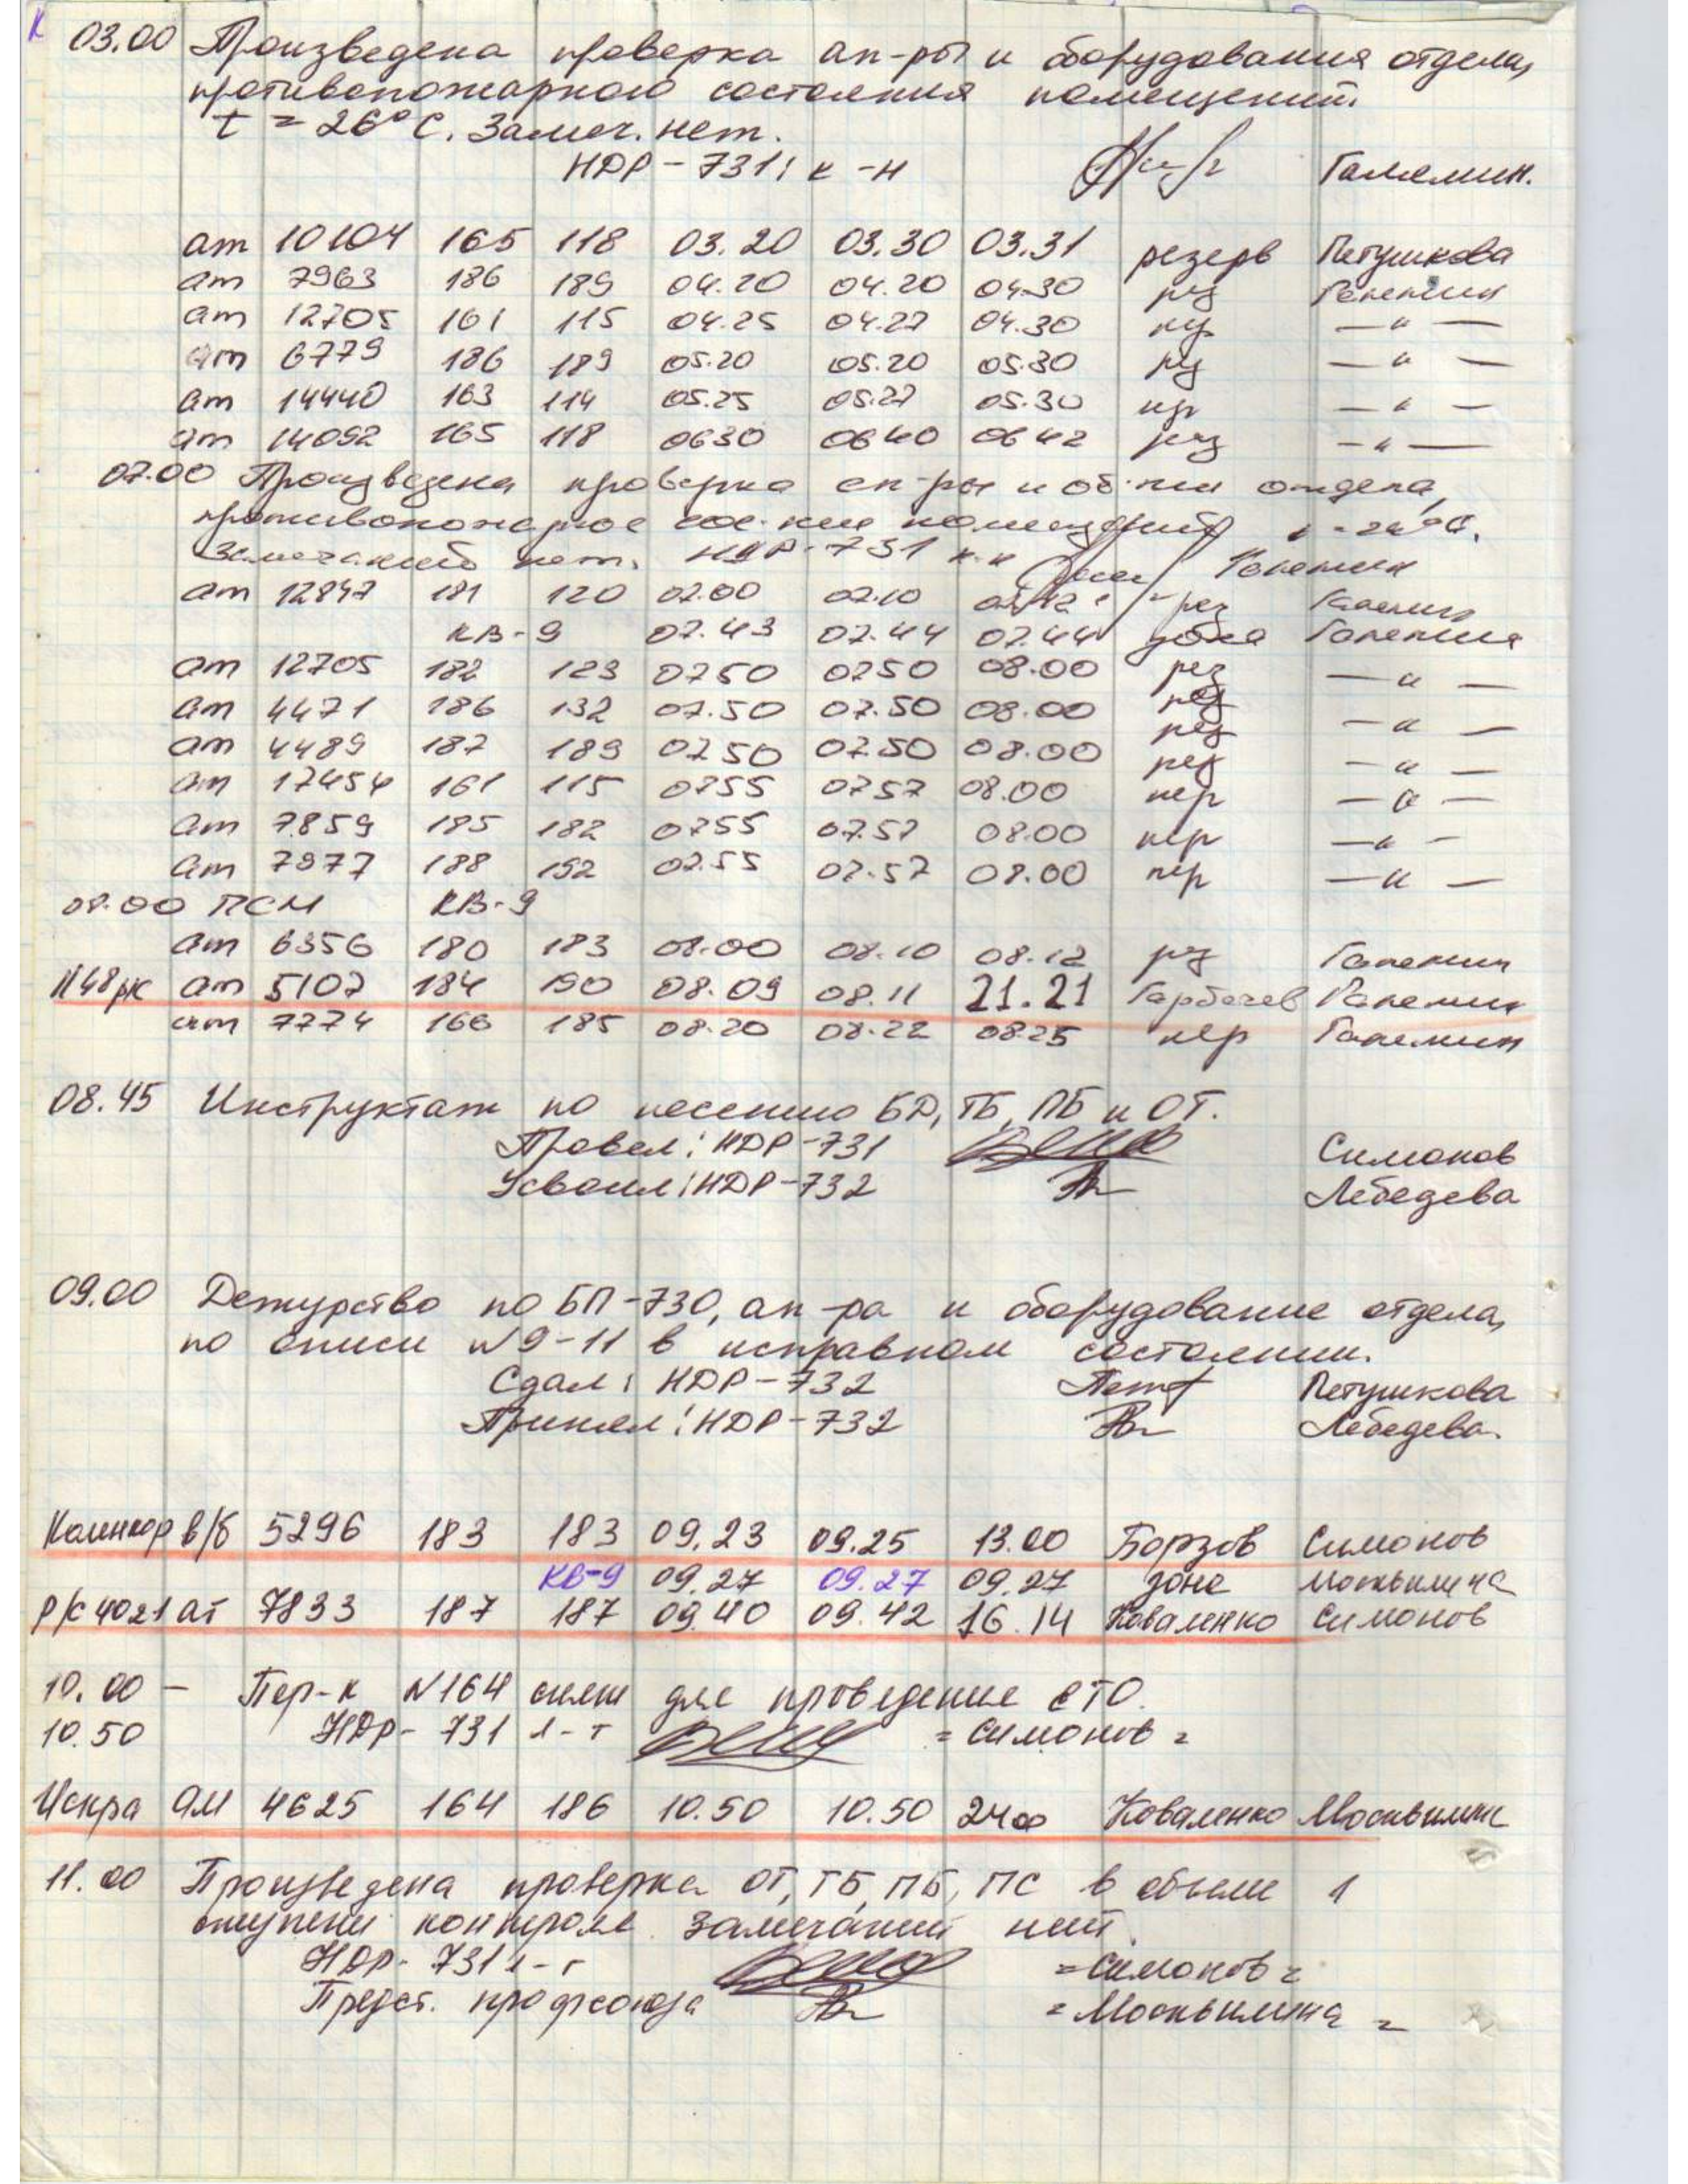 03.00 Произведена проверка ап-ры и оборудования отдела,
противопожарного состояния помещений.
t = 26°С. Замеч. нет.
НДР-731: к-н
ат 10104 165 118 03.20 03.30 03.31 резерв Петушкова
ат 7963 186 189 04.20 04.20 04.30 рез
ат 12705 161 115 04.25 04.27 04.30 — " —
ат 6779 186 189 05.20 05.20 05.30 — " —
ат 14440 163 114 05.25 05.27 05.30 — " —
ат 14092 165 118 0630 0640 0642 рез — " —
07.00 Произведена проверка ап-ры и об-ния отдела,
противопожарное сос-ние помещений
Замечаний нет. НДР-731 к-н
ат 12847 181 120 07.00 07.10 рез
КВ-9 07.43 07.44 07.44
ат 12705 182 123 0750 0750 08.00 рез — " —
ат 4471 186 132 07.50 07.50 08.00 рез — " —
ат 4489 187 189 0750 07.50 08.00 рез — " —
ат 17454 161 115 0755 0757 08.00 пер — " —
ат 7859 185 182 0755 07.57 08.00 пер — " —
ат 7977 188 192 07.55 07.57 08.00 пер — " —
08.00 ПСМ КВ-9
ат 6356 180 183 08.00 08.10 08.12 рез
ат 5107 184 190 08.09 08.11 21.21 Горбачев
ат 7774 166 185 08.20 08.22 08.25 пер
08.45 Инструктаж по несению БД, ТБ, ПБ и ОТ.
Провел: НДР-731 Симонов
Усвоил: НДР-732 Лебедева
09.00 Дежурство по БП-730, ап-ра и оборудование отдела,
по описи №9-11 в исправном состоянии.
Сдал: НДР-732 Петушкова
Принял: НДР-732 Лебедева.
Коленкор в/б 5296 183 183 09.23 09.25 13.00 Борзов Симонов
КВ-9 09.27 09.27 09.27 зона Москвилина
Р/С 4021 ат 7833 187 187 09.40 09.42 16.14 Коваленко Симонов
10.00 — Пер-к №164 снят для проведение СТО.
10.50 НДР-731 л-т = Симонов =
Искра ам 4625 164 186 10.50 10.50 2400 Коваленко Москвилина
11.00 Произведена проверка ОТ, ТБ, ПБ, ПС в объеме 1
ступени контроля. Замечаний нет.
НДР-731 л-т = Симонов =
Предст. профсоюза = Москвилина =